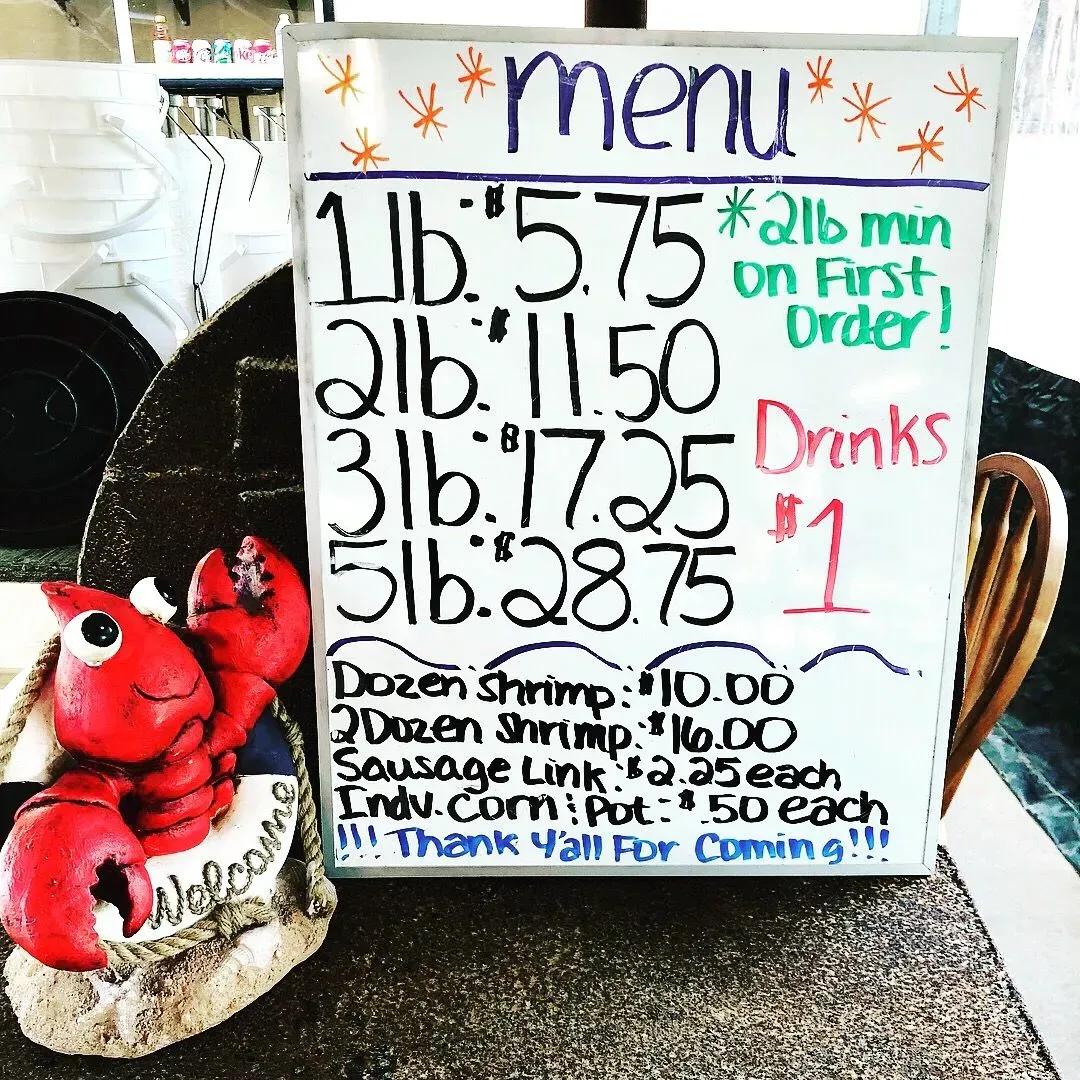 menu
1lb.-$5.75
2lb.-$11.50
3lb.-$17.25
5lb.-$28.75
*2lb min
on First
Order!
Drinks
$1
Dozen Shrimp:$10.00
2Dozen Shrimp:$16.00
Sausage Link:$2.25 each
Indv. Corn : Pot-$.50 each
!!! Thank Y'all For Coming!!!
Welcome